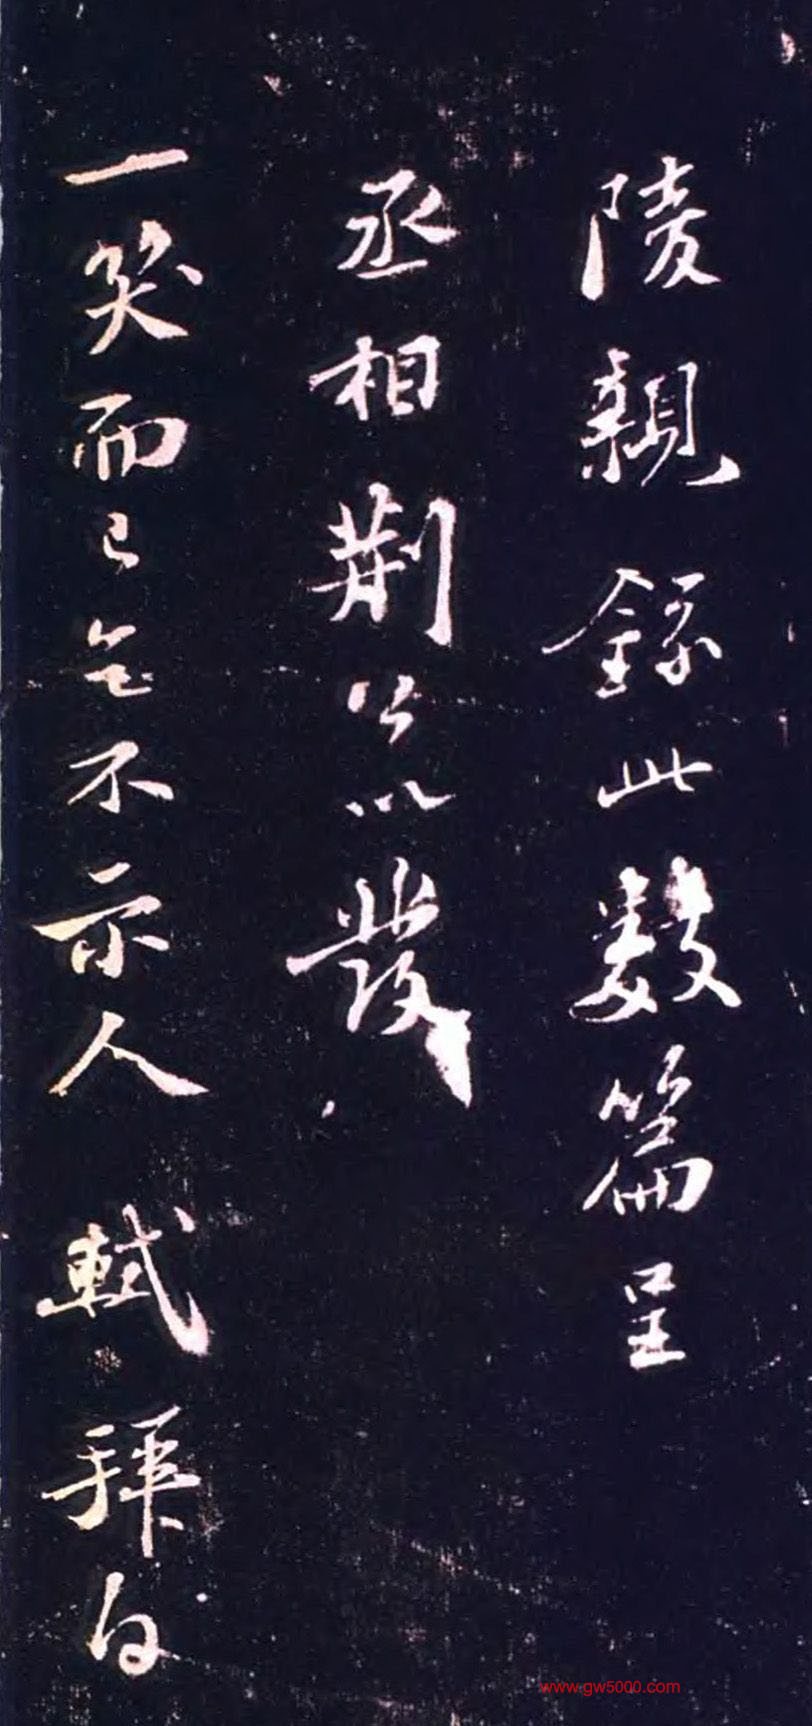 陵親錄此數篇呈
丞相荆公以發
一笑而已乞不示人 軾拜白
www.gw5000.com